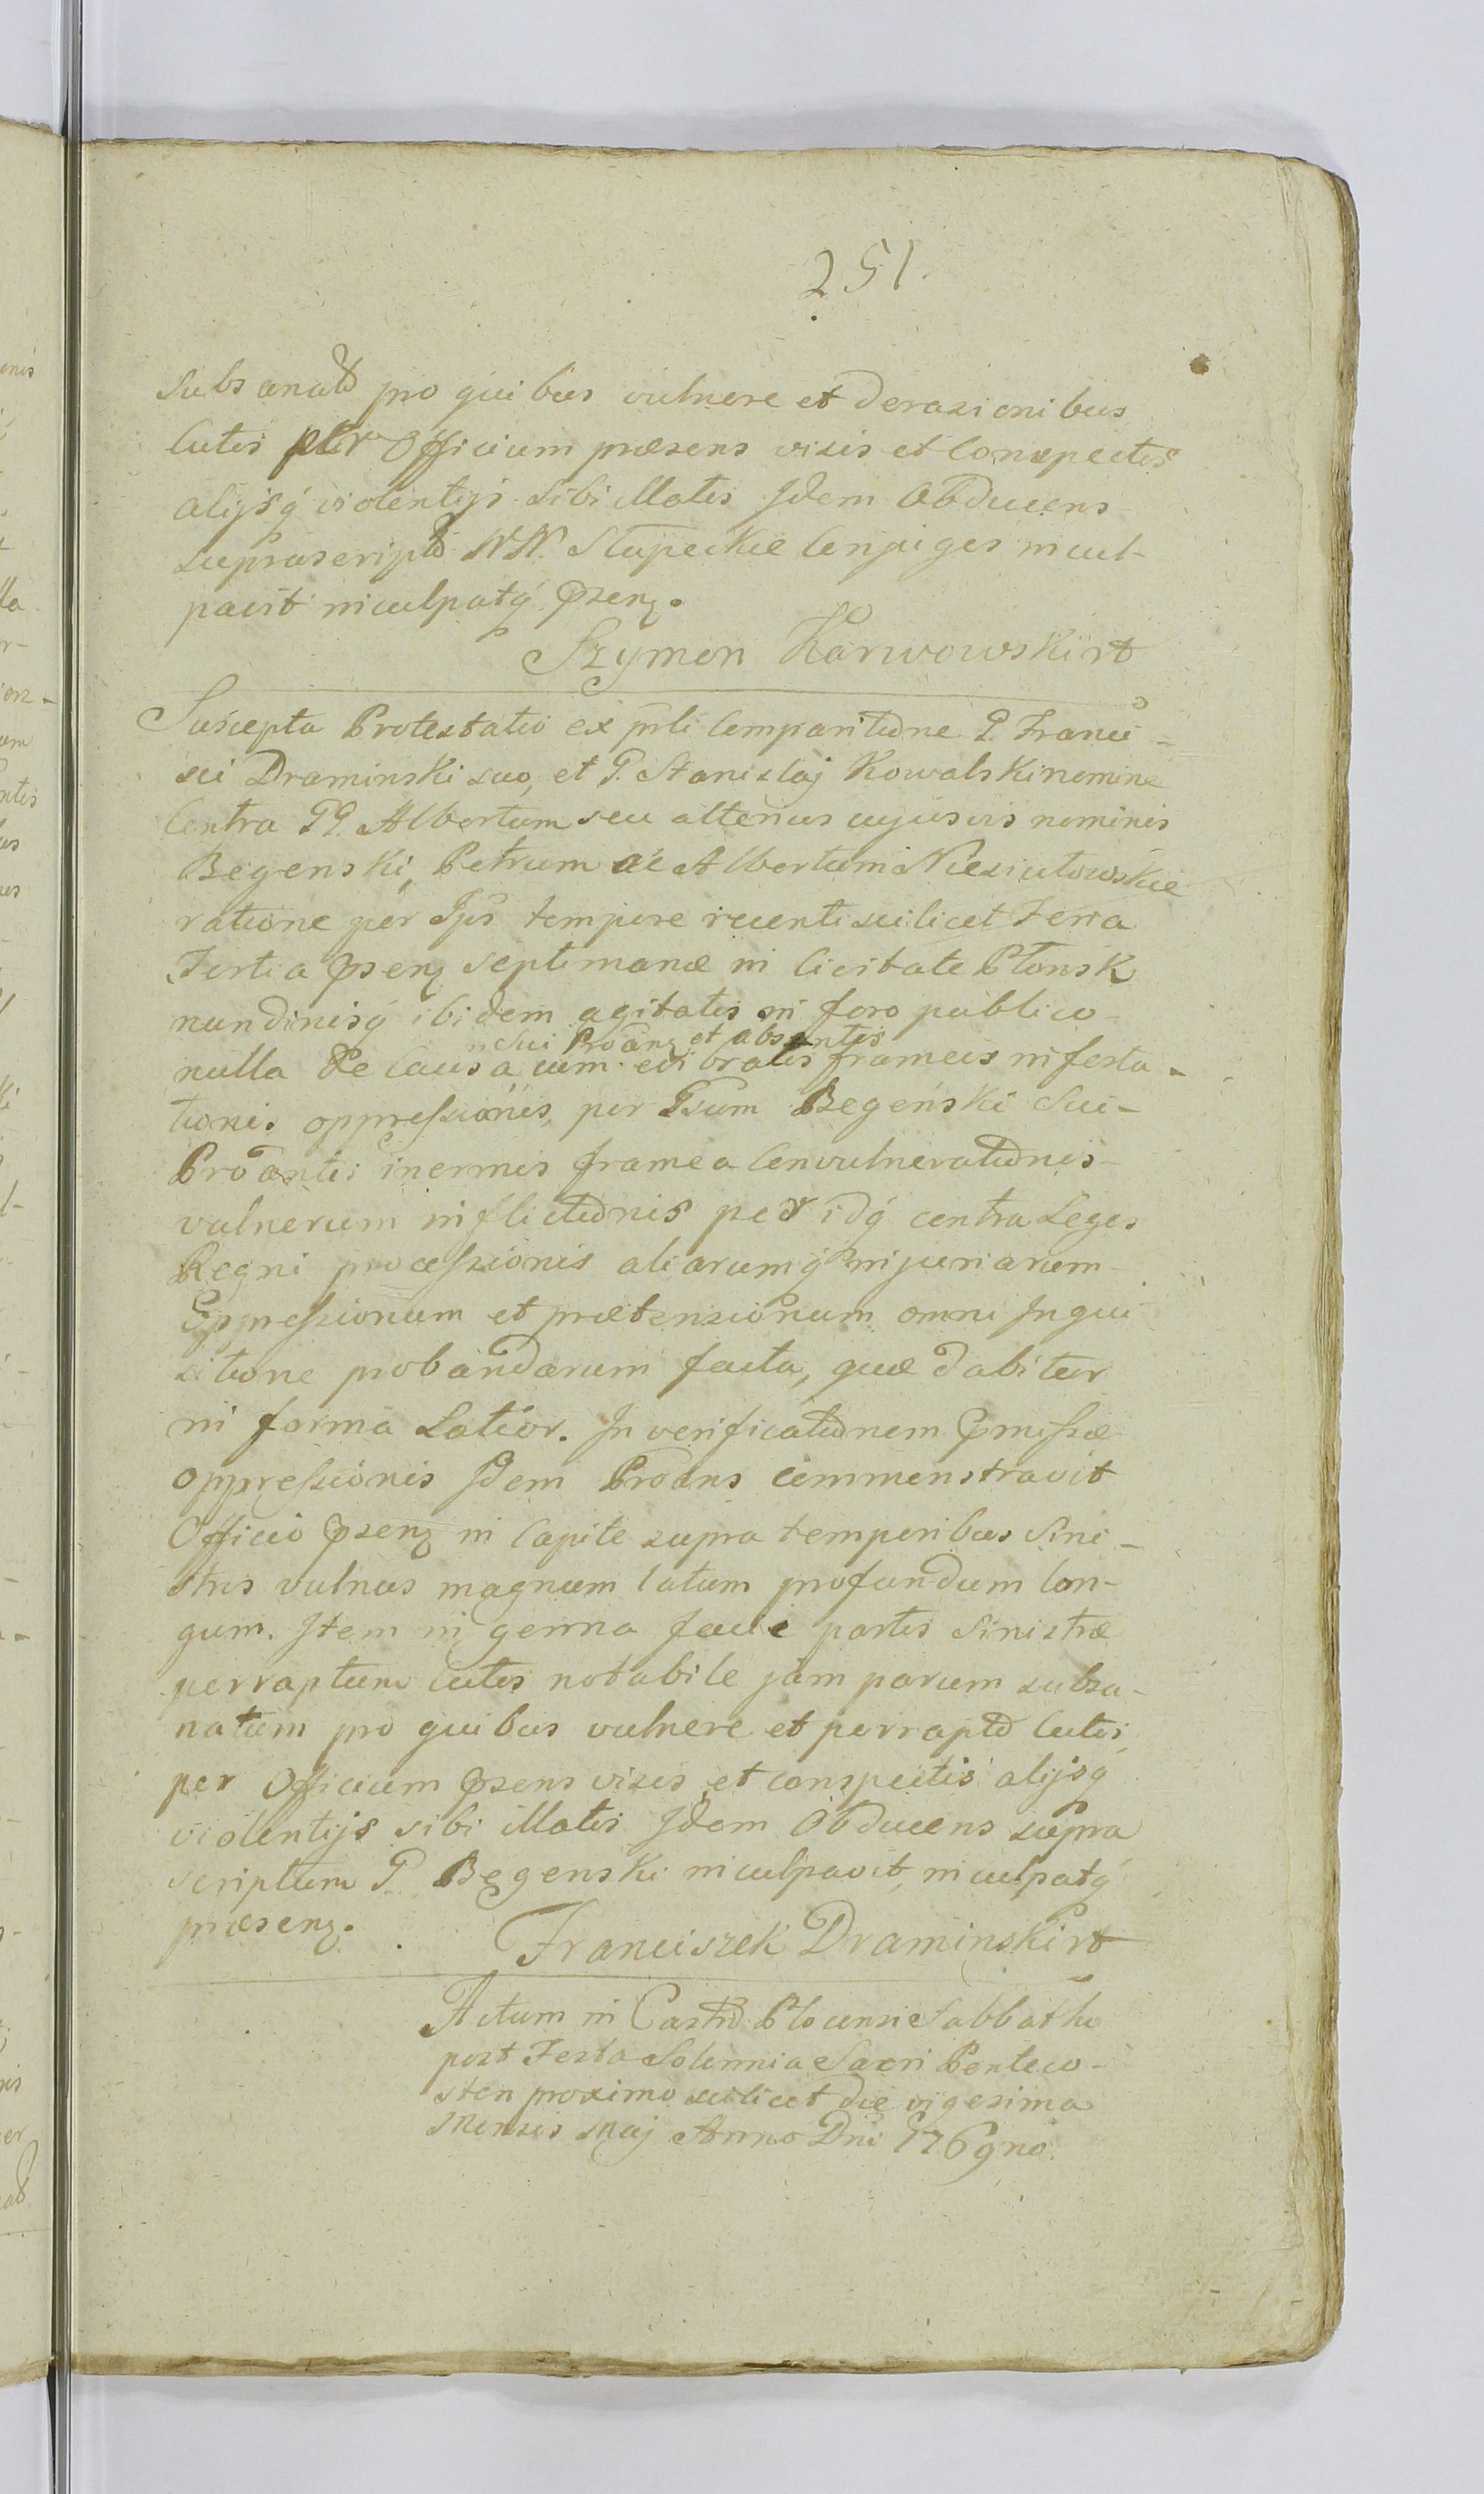 251.
subsanatis pro quibus vulnere et Derasionibus
Cutis per Officium præsens visis et Conspectis
alijsq́ violentijs Sibi illatis Idem Obducens
suprascriptos NN. Słupeckie Conjuges incul-
pavit inculpatq́ Przenz.
Szymon Karwowski rt
Suscepta Protestatio ex prli Comparitione P. Franci-
sci Draminski suo, et P. Stanislaj Kowalski nomine
Contra PP. Albertum seu alterius cujusvis nominis
Begenski, Petrum ac Albertum Niesiułowskie
ratione per Ips tempore recenti scilicet Feria
Tertia Przenz Septimanæ in Civitate Płonsk
nundinisq́ ibidem agitatis in foro publico
Sui Proanz et absentis
nulla De Causa cum evibratis frameis infesta-
tionis oppressionis, per Psum Begeński Sui-
Proantis inermis framea Convulnerationis
vulnerum inflictionis per idq́ contra Leges
Regni processionis aliarumq́ injuriarum
Oppressionum et prætensionum omni Inqui
sitione probandarum facta, quæ dabitur
in forma Latior. In verificationem Pmissæ
oppressionis Idem Proans commonstravit
Officio Przenz in Capite supra temporibus Sini-
stris vulnus magnum latum profundum lon-
gum. Item in genna facie partis Sinistræ
perraptum cutis notabile jam parum subsa-
natum pro quibus vulnere et perrapto Cutis,
per Officium Przens visis et conspectis alijsq́
violentijs sibi illatis Idem Obducens supra
scriptum P. Begenski inculpavit, inculpatq́
præsenz.
Franciszek Draminski rt
Actum in Castro Płocensi Sabbatho
post Festa Solennia Sacri Penteco-
sten proximo scilicet die vigesima
Mensis Maij Anno Dni 1769no.